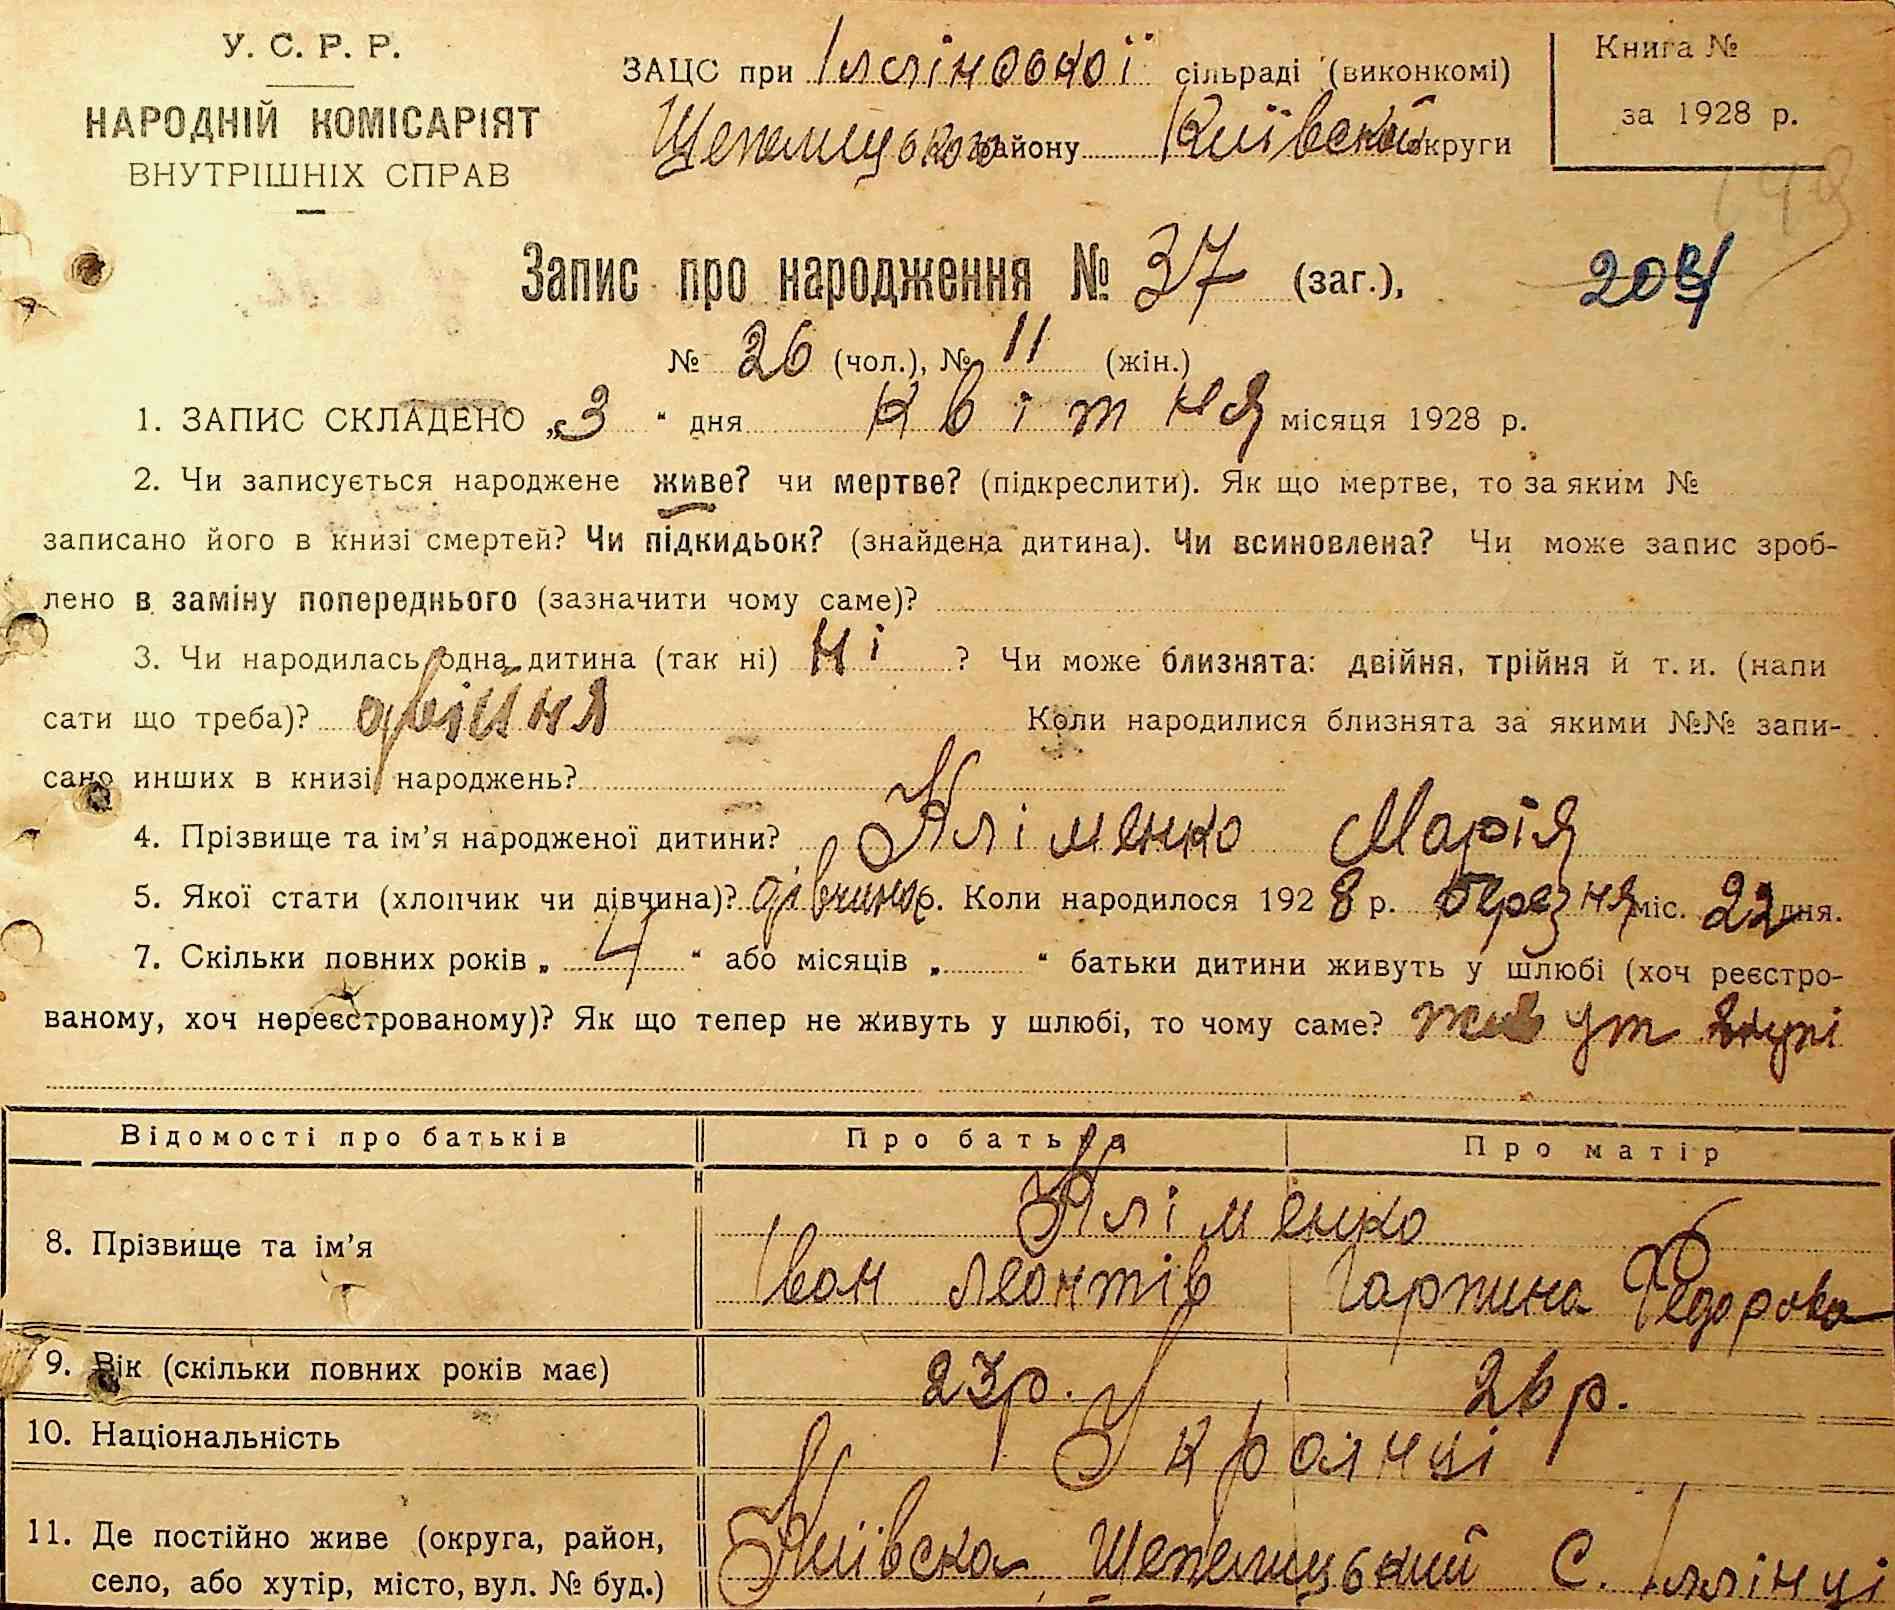 У. С. Р. Р.
НАРОДНІЙ КОМІСАРІЯТ
ВНУТРІШНІХ СПРАВ
ЗАЦС при Іллінсокої сільраді (виконкомі)
Шепелицького району Київської округи
Книга №
за 1928 р.
149
Запис про народження № 37 (заг.),
204
№ 26 (чол.), № 11 (жін.)
1. ЗАПИС СКЛАДЕНО „3“ дня квітня місяця 1928 р.
2. Чи записується народжене живе? чи мертве? (підкреслити). Як що мертве, то за яким №
записано його в книзі смертей? Чи підкидьок? (знайдена дитина). Чи всиновлена? Чи може запис зроб-
лено в заміну попереднього (зазначити чому саме)?
3. Чи народилась одна дитина (так ні) ні ? Чи може близнята: двійня, трійня й т. и. (напи
сати що треба)? двійня Коли народилися близнята за якими №№ запи-
сано инших в книзі народжень?
4. Прізвище та ім’я народженої дитини? Кліменко Марія
5. Якої стати (хлопчик чи дівчина)? дівчина 6. Коли народилося 1928 р. березня міс. 22 дня.
7. Скільки повних років „ 4 “ або місяців „ “ батьки дитини живуть у шлюбі (хоч реєстро-
ваному, хоч нереєстрованому)? Як що тепер не живуть у шлюбі, то чому саме? живут вкупі
Відомості про батьків Про батька Про матір
8. Прізвище та ім’я Кліменко
Іван Леонтів Гарпина Федорова
9. Вік (скільки повних років має) 23 р. 26 р.
10. Національність Українці
11. Де постійно живе (округа, район,
село, або хутір, місто, вул. № буд.) Київска, Шепелицький с. Іллінці